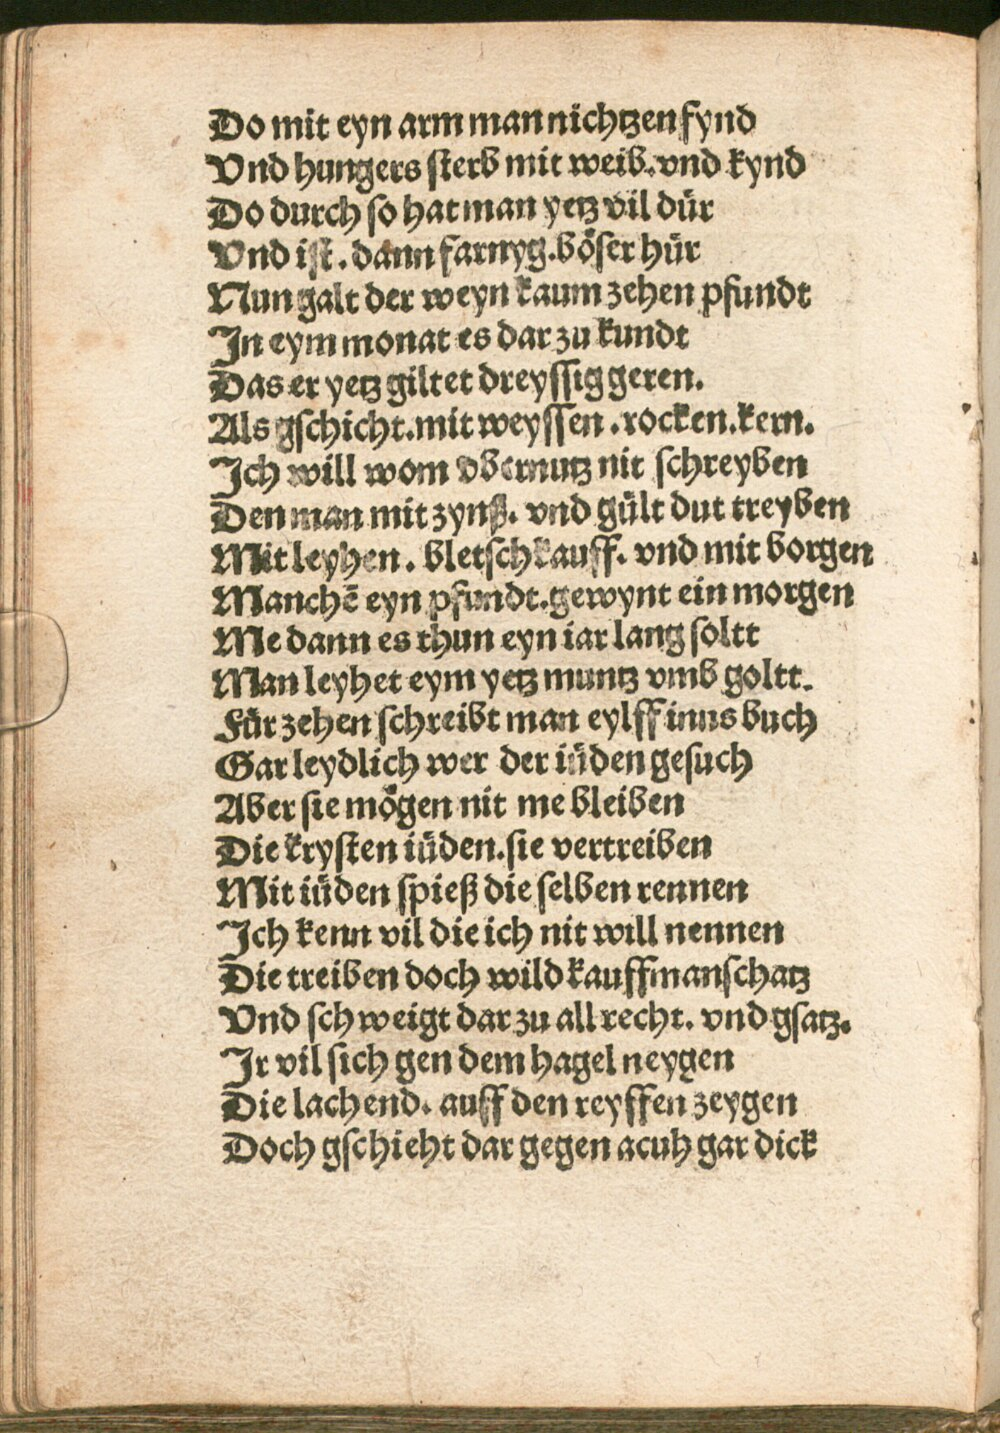 Do mit eyn arm man nichtzen fynd
Vnd hungers sterb mit weib. vnd kynd
Do durch so hat man yetz vil dür
Vnd ist. dann farnyg. böser hür
Nun galt der weyn kaum zehen pfundt
In eym monat es dar zu kundt
Das er yetz giltet dreyssig geren.
Als gschicht. mit weyssen. rocken. kern.
Ich will wom vbernutz nit schreyben
Den man mit zynß. vnd gült dut treyben
Mit leyhen. bletschkauff. vnd mit borgen
Manchē eyn pfundt. gewynt ein morgen
Me dann es thun eyn iar lang soltt
Man leyhet eym yetz muntz vmb goltt.
Für zehen schreibt man eylff inns buch
Gar leydlich wer der iüden gesuch
Aber sie mögen nit me bleiben
Die krysten iüden. sie vertreiben
Mit iüden spieß die selben rennen
Ich kenn vil die ich nit will nennen
Die treiben doch wild kauffmanschatz
Vnd schweigt dar zu all recht. vnd gsatz.
Ir vil sich gen dem hagel neygen
Die lachend. auff den reyffen zeygen
Doch gschieht dar gegen acuh gar dick